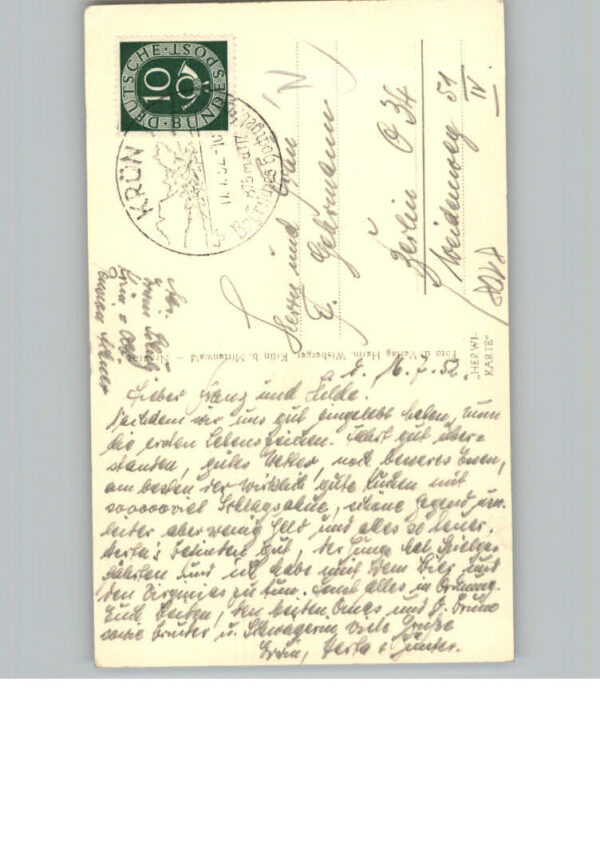 DEUTSCHE·POST·BUNDESPOST
10
KRÜN
875 m ü.M.
Herrn und Frau
E. Gehrmann
Berlin O 34
Weidenweg 51
IV
Foto u. Verlag Herm. Wisberger, Krün b. Mittenwald
„HERWI-
KARTE"
16.7.52.
Lieber Franz und Hilde.
Nachdem wir uns gut eingelebt haben, nun
die ersten Lebenszeichen. Fahrt gut über-
standen, gutes Wetter, noch besseres Essen,
am besten der wirklich gute Kuchen mit
sooooooviel Schlagsahne, schöne Gegend
leider aber wenig Geld und alles so teuer.
Herta's Befinden gut, der Junge hat Spielge-
fährten und ich habe mit dem Bier und
den zu tun. Sonst alles in Ordnung.
Euch beiden, den beiden Omas und Bruno
sowie Bruder u. Schwägerin viele Grüße
Erwin, Herta u. Günter.